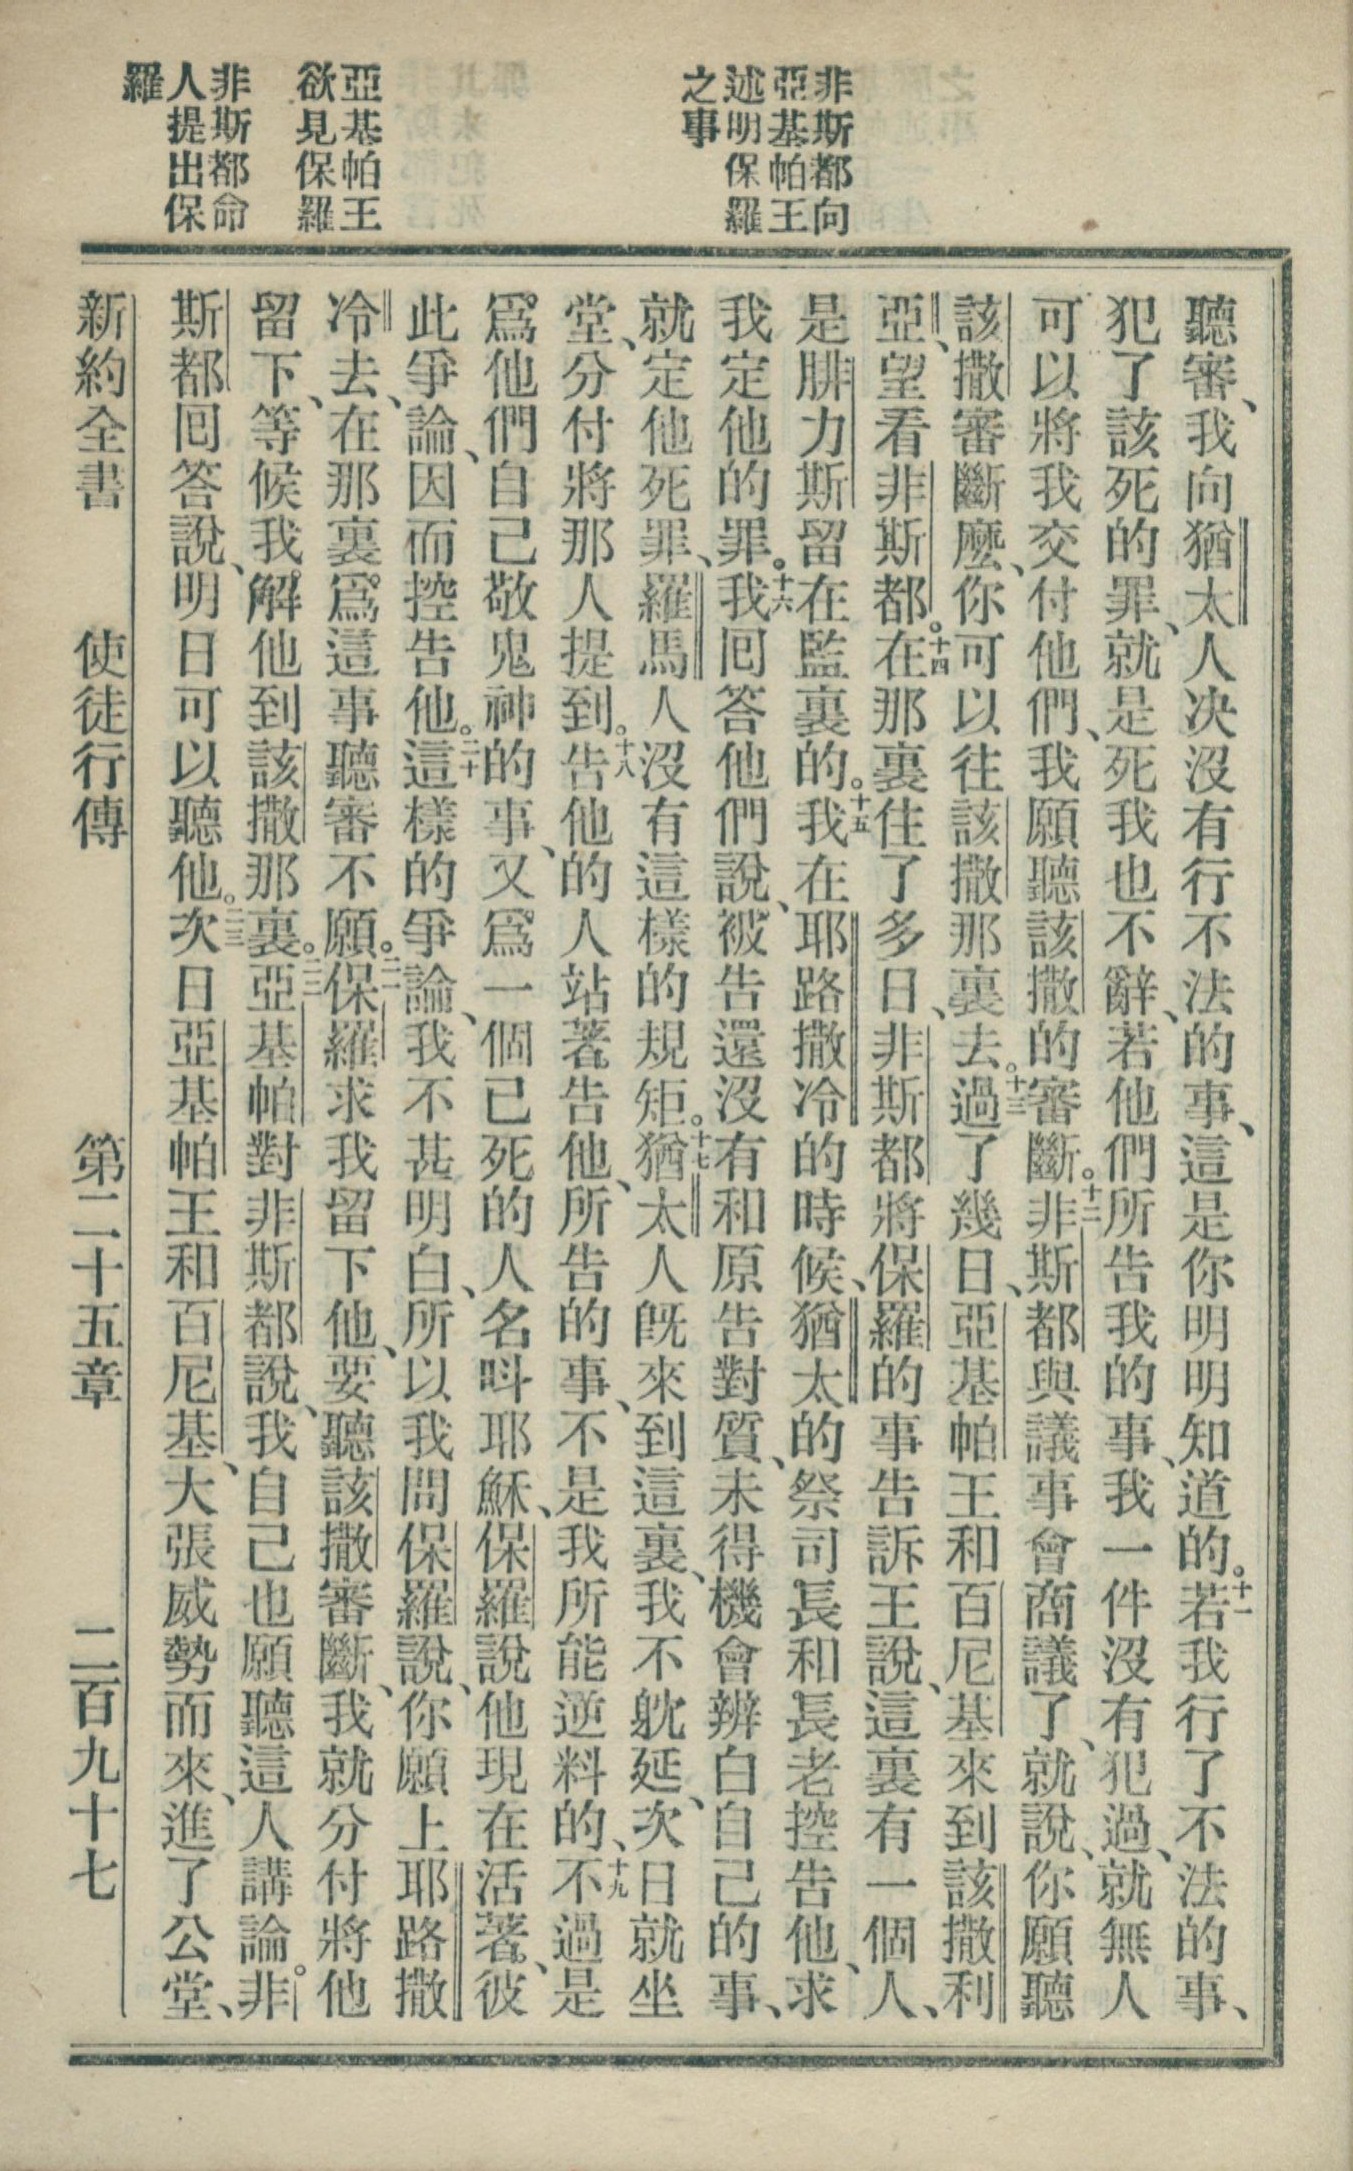 非斯都向
亞基帕王
述明保羅
之事
亞基帕王
欲見保羅
非斯都命
人提出保
羅
聽審、我向猶太人决沒有行不法的事、這是你明明知道的。十一若我行了不法的事、
犯了該死的罪、就是死我也不辭、若他們所告我的事、我一件沒有犯過、就無人
可以將我交付他們、我願聽該撒的審斷。十二非斯都與議事會商議了、就說、你願聽
該撒審斷麽、你可以往該撒那裏去。十三過了幾日、亞基帕王和百尼基來到該撒利
亞、望看非斯都。十四在那裏住了多日、非斯都將保羅的事告訴王說、這裏有一個人、
是腓力斯留在監裏的。十五我在耶路撒冷的時候、猶太的祭司長和長老控告他、求
我定他的罪。十六我囘答他們說、被告還沒有和原告對質、未得機會辨白自己的事、
就定他死罪、羅馬人沒有這樣的規矩。十七猶太人旣來到這裏、我不躭延、次日就坐
堂、分付將那人提到。十八告他的人站著告他、所告的事、不是我所能逆料的、十九不過是
爲他們自己敬鬼神的事、又爲一個已死的人名呌耶穌、保羅說他現在活著、彼
此爭論、因而控告他。二十這樣的爭論、我不甚明白、所以我問保羅說、你願上耶路撒
冷去、在那裏爲這事聽審不願。二一保羅求我留下他、要聽該撒審斷、我就分付將他
留下、等候我解他到該撒那裏。二二亞基帕對非斯都說、我自己也願聽這人講論。非
斯都囘答說、明日可以聽他。二三次日亞基帕王和百尼基、大張威勢而來、進了公堂、
新約全書　使徒行傳　第二十五章　二百九十七